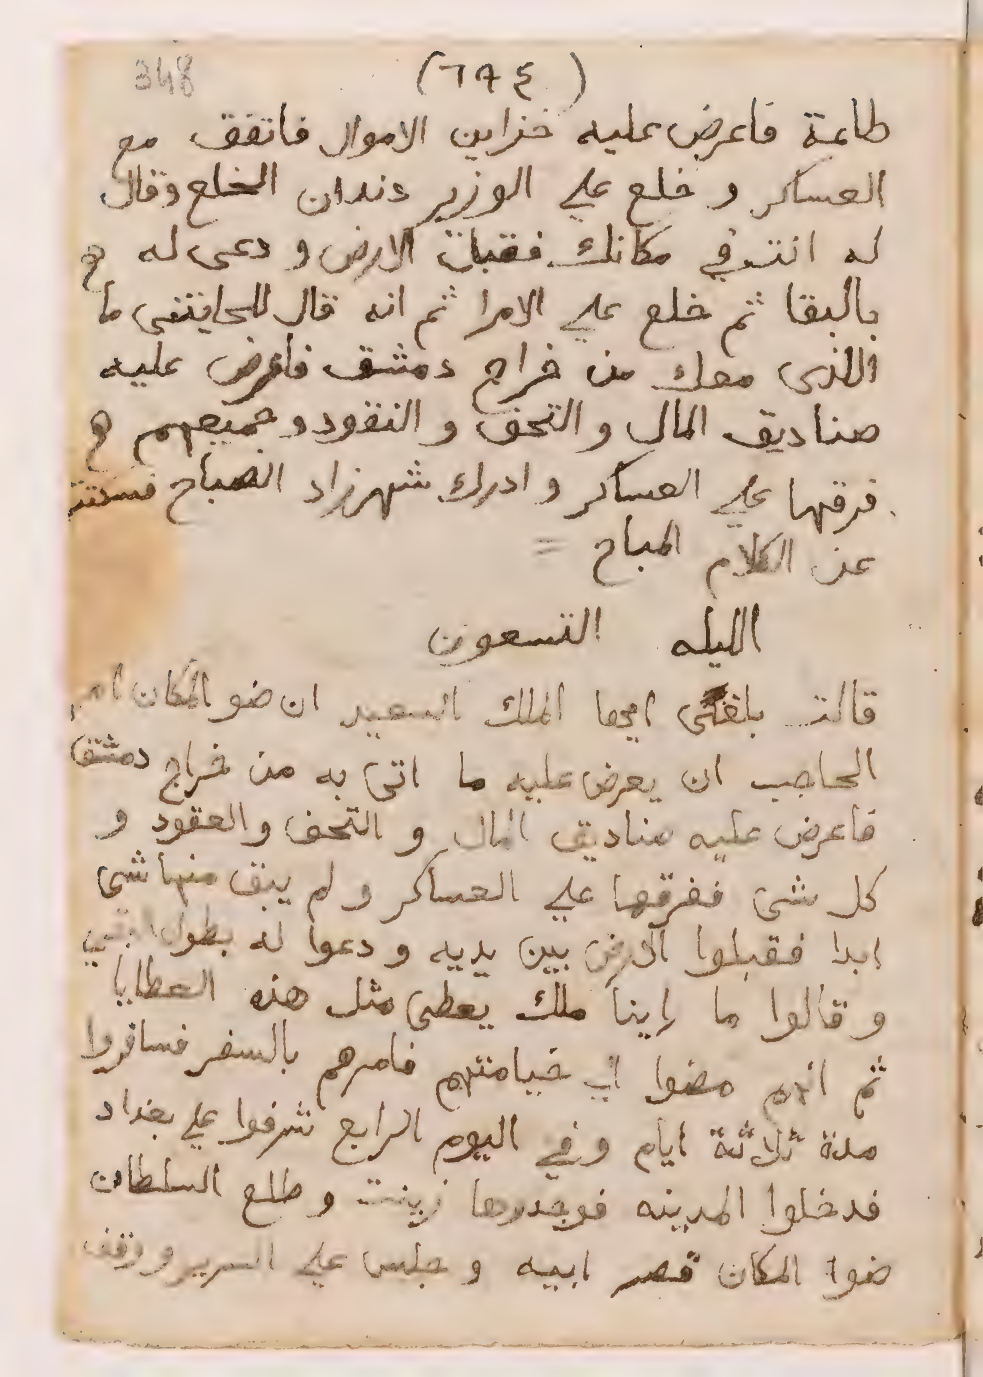 348
(٦٩٤)
طاعة فاعرض عليه خزاين الاموال فاتفق مع
العساكر و خلع علي الوزير دندان الخلع وقال
له انت في مكانك فقبل الارض و دعى له
بالبقا ثم خلع علي الامرا ثم انه قال للحاجب ما
اللذى معك من خراج دمشق فاعرض عليه
صناديق المال و التحف و النقود و جميعهم
فرقها علي العساكر و ادرك شهرزاد الصباح فسكتت
عن الكلام المباح =
الليله التسعون
قالت بلغنى ايها الملك السعيد ان ضو المكان امر
الحاجب ان يعرض عليه ما اتى به من خراج دمشق
فاعرض عليه صناديق المال و التحف و العقود و
كل شى ففرقها علي العساكر و لم يبق منها شى
ابدا فقبلوا الارض بين يديه و دعوا له بطول
و قالوا ما راينا ملك يعطى مثل هذه العطايا
ثم انهم مضوا الي خيامتهم فامرهم بالسفر فسافروا
مدة ثلاثة ايام و في اليوم الرابع شرفوا علي بغداد
فدخلوا المدينه فوجدوها زينت و طلع السلطان
ضوا المكان قصر ابيه و جلس علي السرير و وقف